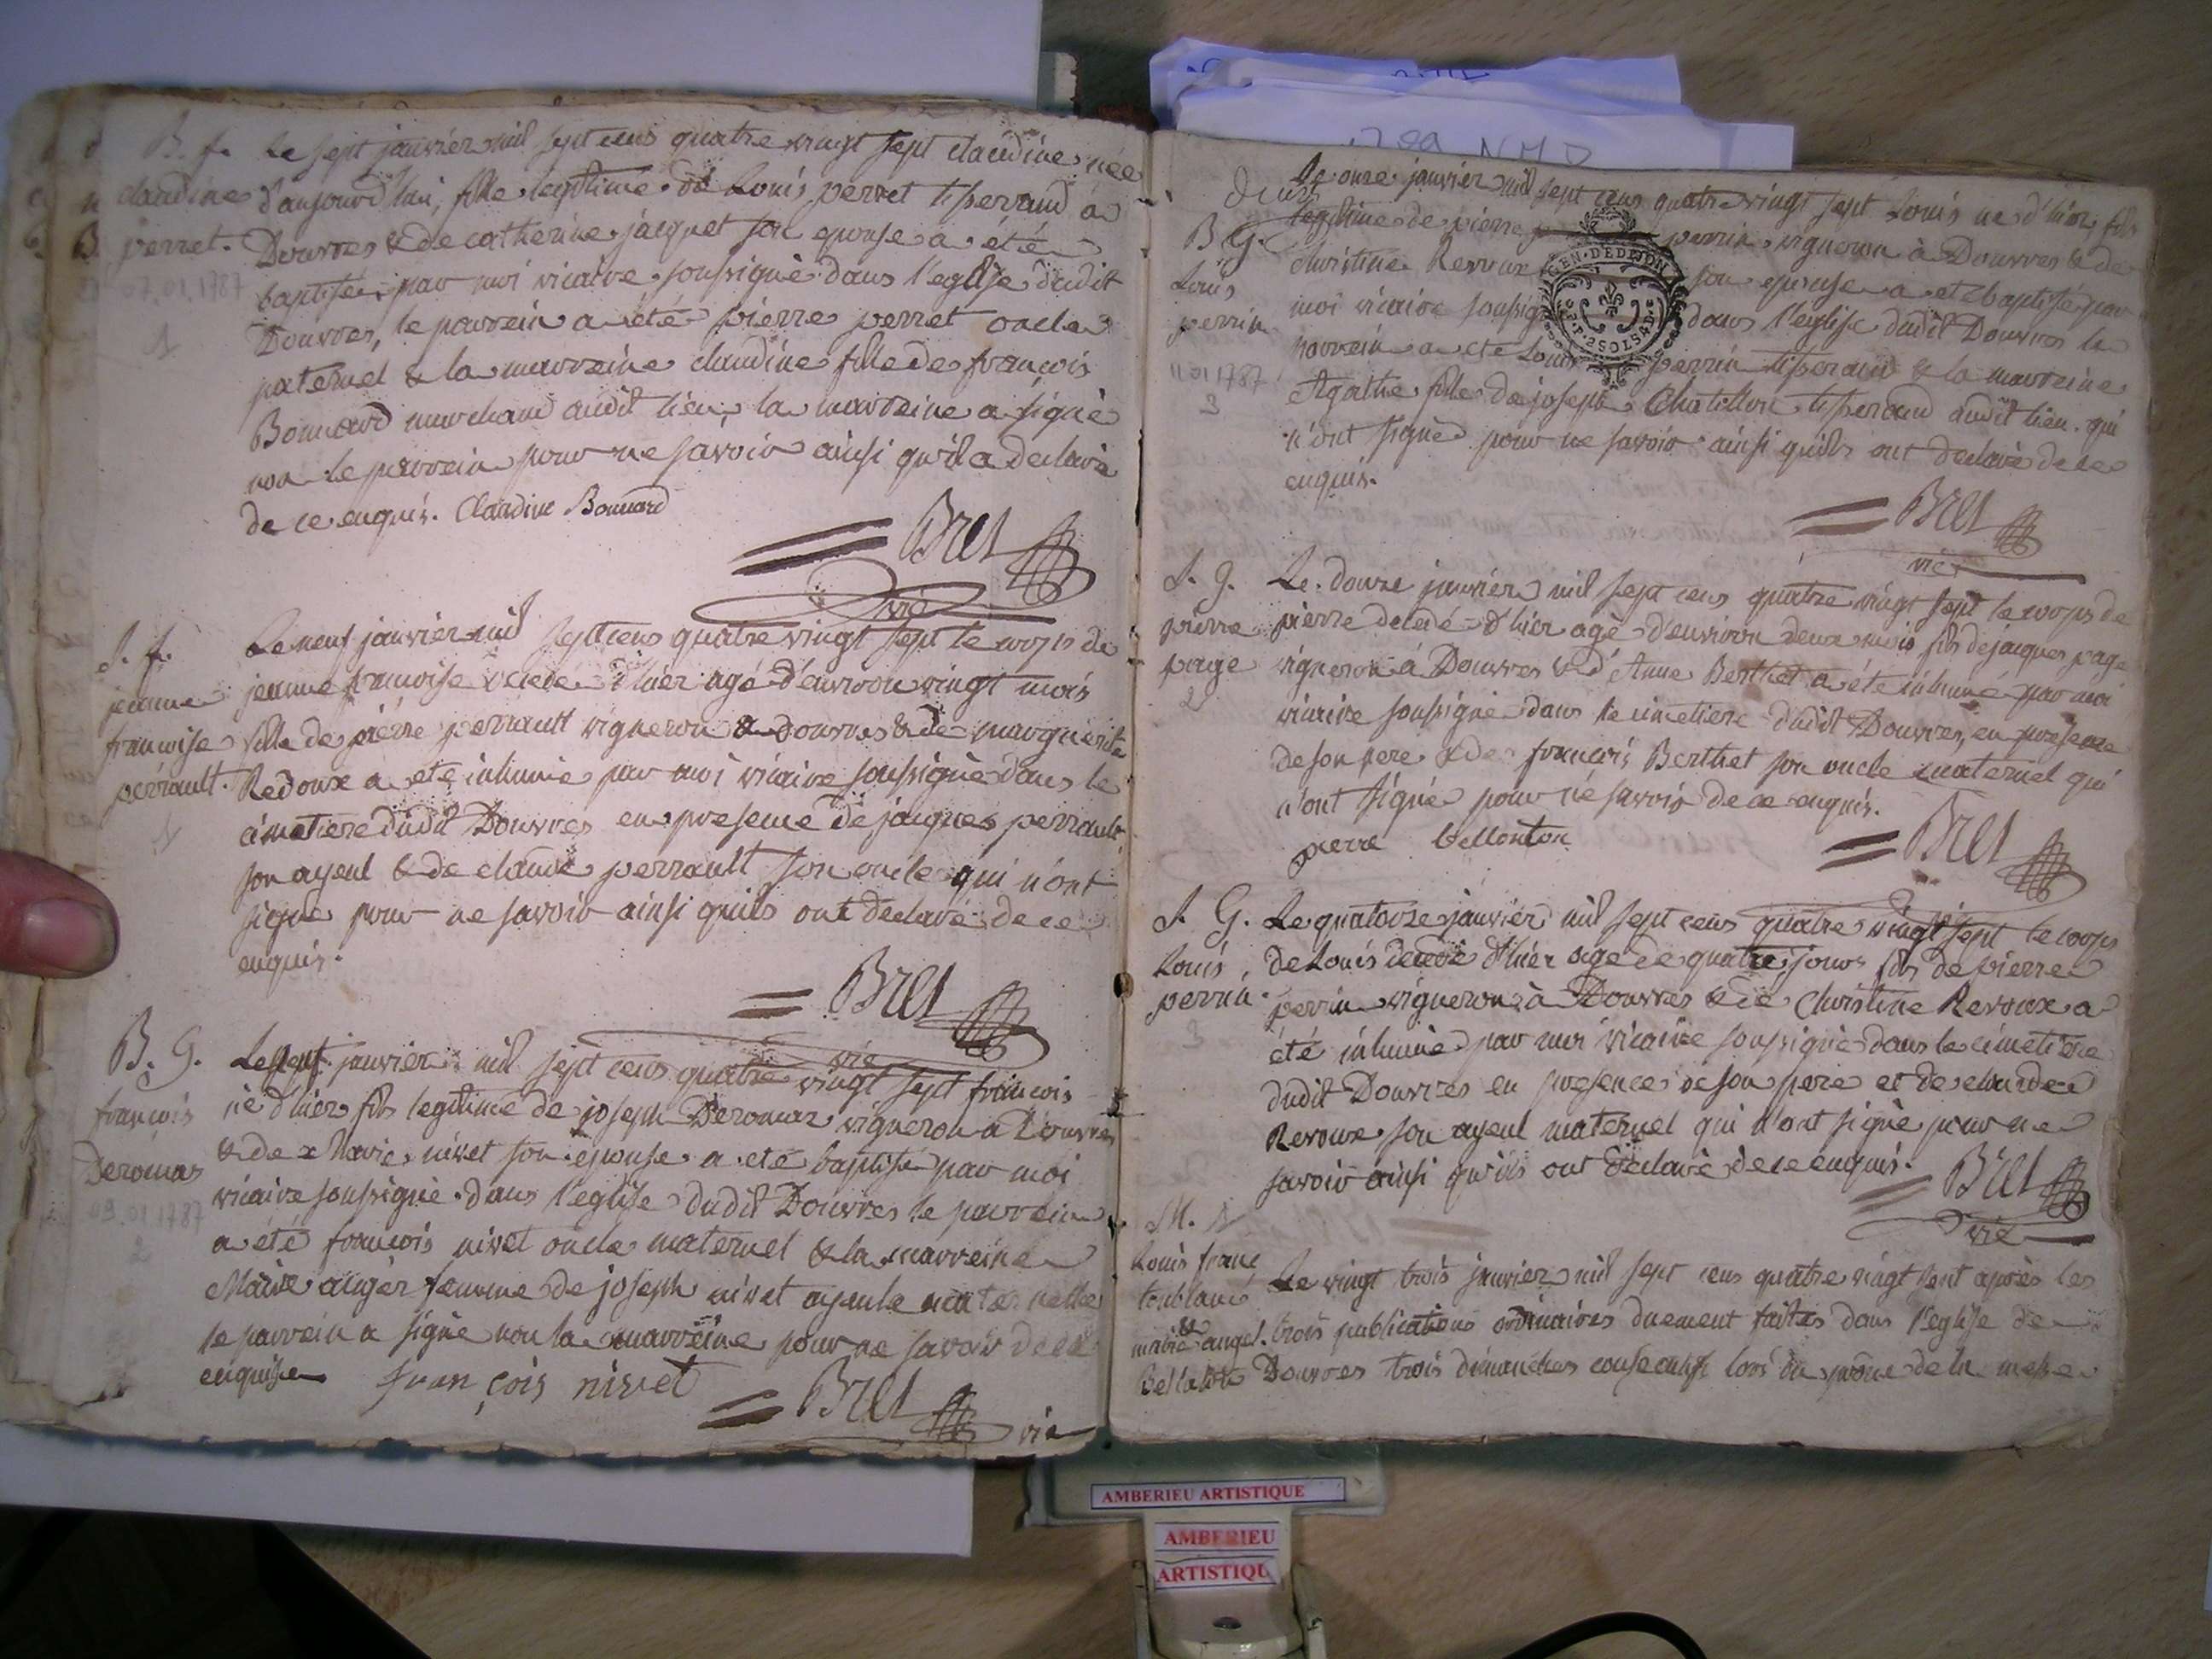 B. f.
claudine
perret.
07.01.1787
1
Le sept janvier mil sept cens quatre vingt sept claudine née
d'aujourd'hui, fille legitime de Louis perret tisserand à
Douvres & de catherine jacquet son epouse a été
baptisée par moi vicaire soussigné dans l'eglise dudit
Douvres, le parrein a été pierre perret oncle
paternel & la marreine claudine fille de françois
Bonnard marchand audit lieu la marreine a signé
non le parrein pour ne savoir ainsi qu'il a declaré
de ce enquis. Claudine Bonnard
Bret
vic
S. f.
jeanne
francoise
perrault.
1
Le neuf janvier mil sept cens quatre vingt sept le corps de
jeanne francoise decedé d'hier agé d'environ vingt mois
fille de pierre perrault vigneron a Douvres & de marguerite
Redoux a eté inhumé par moi vicaire soussigné dans le
cimetiere dudit Douvres en presence de jacques perrault
son ayeul & de claude perrault son oncle qui n'ont
signé pour ne savoir ainsi quils ont declaré de ce
enquis.
Bret
vic
B. G.
francois
Deromas
09.01 1787
2
Le neuf janvier mil sept cens quatre vingt sept francois
né d'hier fils legitime de joseph Deromas vigneron a Douvres
& de Marie nivet son epouse a eté baptisé par moi
vicaire soussigné dans l'eglise dudit Douvres le parrein
a été francois nivet oncle maternel & la marreine
Marie anger femme de joseph nivet ayeule maternelle
le parrein a signé non la marreine pour ne savoir de ce
enquise françois nivet
Bret
vic
B G.
Louis
perrin
11 01 1787
3
Le onze janvier mil sept cens quatre vingt sept Louis né d'hier fils
legitime de pierre perrin vigneron à Douvres & de
christine Revoux son epouse a eté baptisé par
moi vicaire soussigné dans l'eglise dudit Douvres le
parrein a eté Louis perrin tisserand & la marreine
Agathe fille de joseph Chatillon tisserand audit lieu. qui
n'ont signé pour ne savoir ainsi quils ont declaré de ce
enquis.
GEN. DE DIJON
2 SOLS 4 D.
Bret
vic
S. g.
pierre
page
2
Le douze janvier mil sept cens quatre vingt sept le corps de
pierre decedé d'hier agé d'environ deux mois fils de jacques page
vigneron à Douvres & d'Anne Berthet a été inhumé par moi
vicaire soussigné dans le cimetiere dudit Douvres, en presence
de son pere & de francois Berthet son oncle maternel qui
n'ont signé pour ne savoir de ce enquis.
pierre
Bret
S. G.
Louis
perrin.
3
Le quatorze janvier mil sept cens quatre vingt sept le corps
de Louis decedé d'hier agé de quatre jours fils de pierre
perrin vigneron à Douvres & de Christine Revoux a
été inhumé par moi vicaire soussigné dans le cimetiere
dudit Douvres en presence de son pere et de claude
Revoux son ayeul maternel qui n'ont signé pour ne
savoir ainsi qu'ils ont declaré de ce enquis.
Bret
vic
M. 1
Louis franc
&
marie angel.
Le vingt trois janvier mil sept cens quatre vingt sept après les
trois publications ordinaires duement faites dans l'eglise de
Douvres trois dimanches consecutifs lors du prône de la messe
AMBERIEU ARTISTIQUE
AMBERIEU
ARTISTIQU